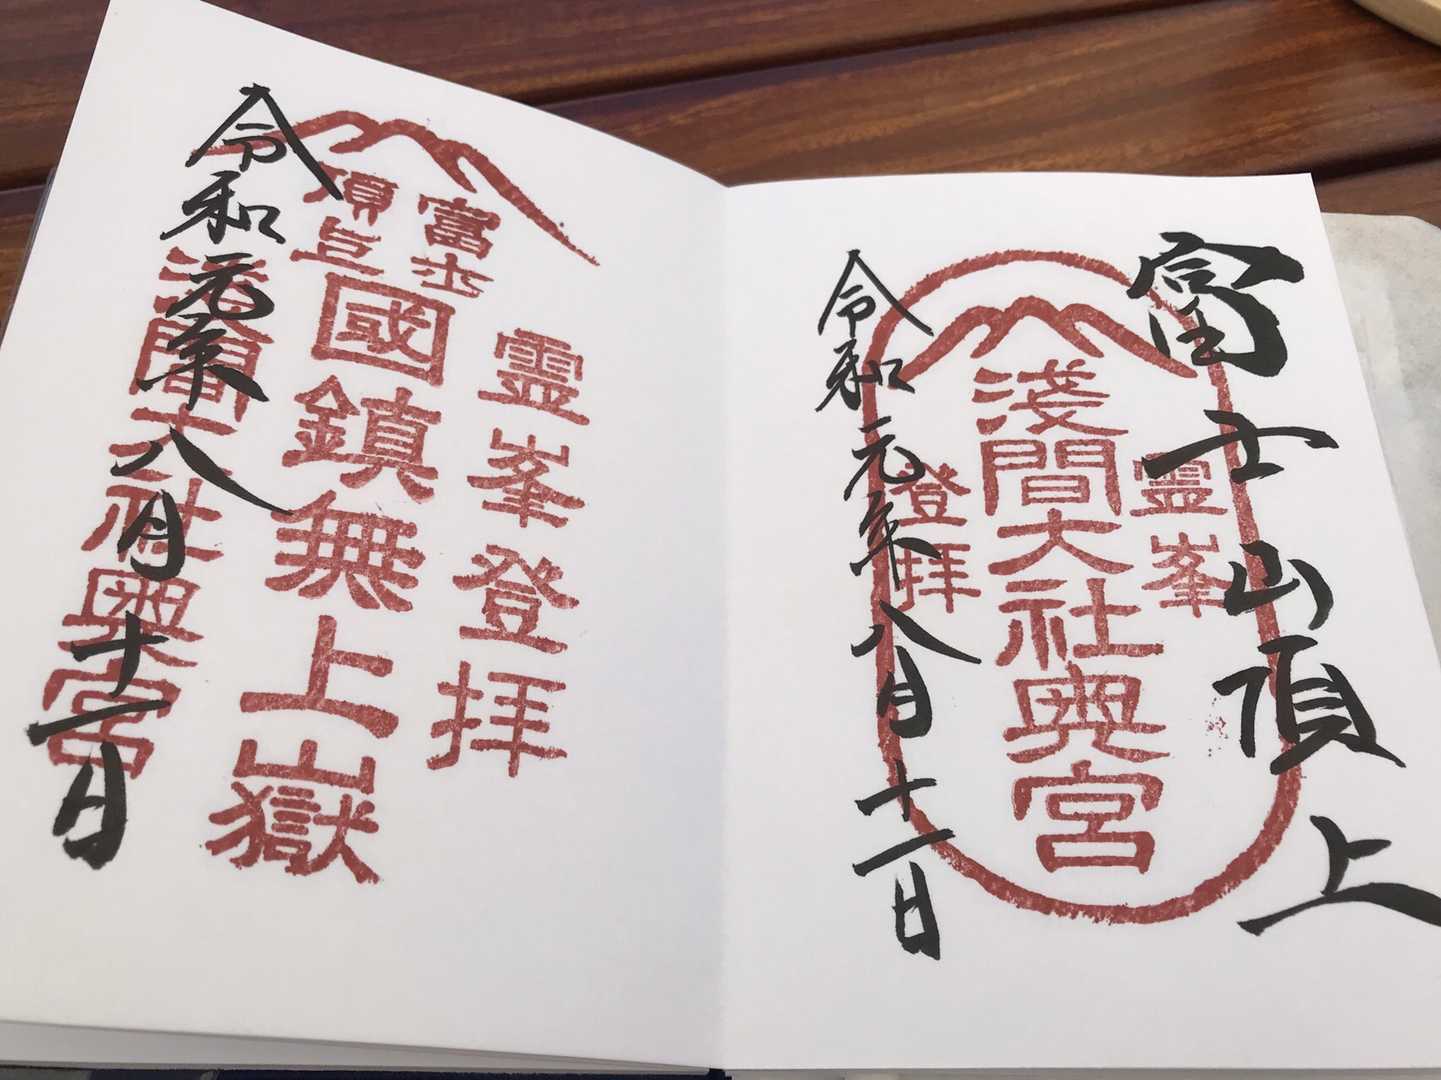 富士山頂上
霊峯
淺間大社奥宮
登拝
令和元年八月十一日
霊峯登拝
富士
頂上
國鎮無上嶽
淺間大社奥宮
令和元年八月十一日